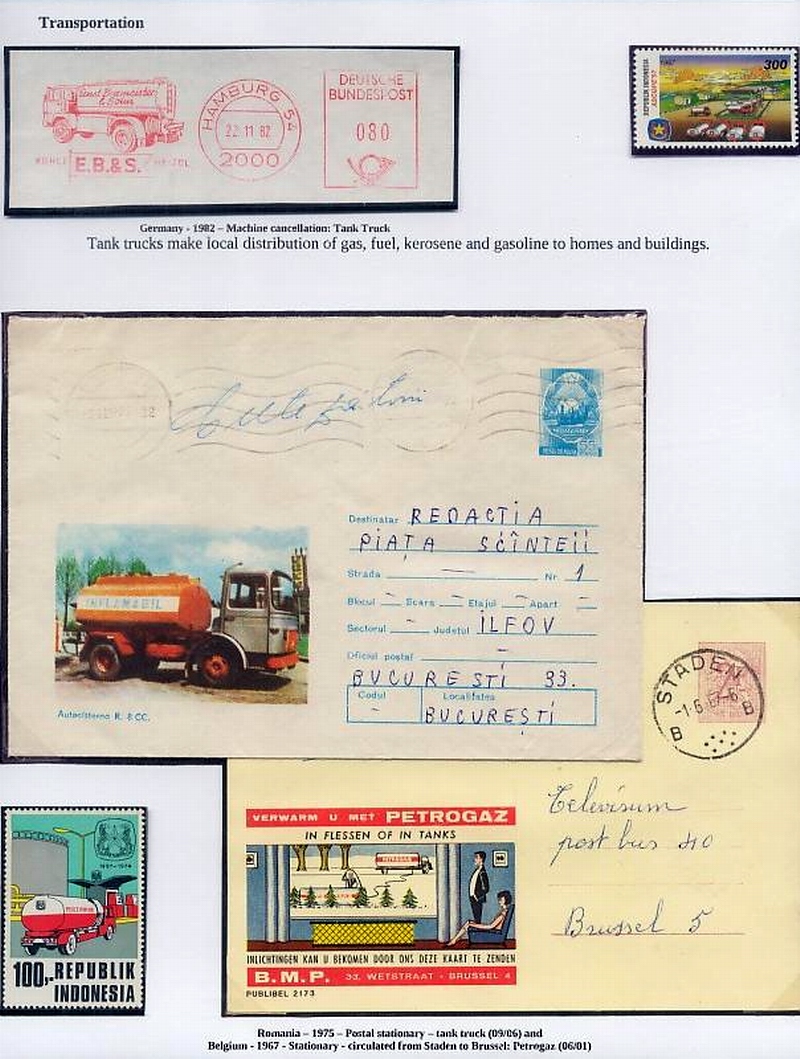 Transportation
Ernst Biemester
& Sohn
E.B.&S.
HAMBURG 54
22.11.82
2000
DEUTSCHE
BUNDESPOST
080
REPUBLIK INDONESIA
300
Germany - 1982 – Machine cancellation: Tank Truck
Tank trucks make local distribution of gas, fuel, kerosene and gasoline to homes and buildings.
55
Destinatar REDACTIA
PIAȚA SCÎNTEII
Strada — Nr. 1
Blocul – Scara – Etajul – Apart. –
Sectorul – Judetul ILFOV
Oficiul postal –
BUCUREȘTI 33.
Codul Localitatea
- BUCUREȘTI
INFLAMABIL
Autocisterna R. 8 CC.
STADEN
-1-6 67-6
B B
Televisum
post bus 410
Brussel 5
VERWARM U MET PETROGAZ
IN FLESSEN OF IN TANKS
PETROGAZ
INLICHTINGEN KAN U BEKOMEN DOOR ONS DEZE KAART TE ZENDEN
B.M.P. 33, WETSTRAAT - BRUSSEL 4
PUBLIBEL 2173
100,- REPUBLIK
INDONESIA
Romania – 1975 – Postal stationary – tank truck (09/06) and
Belgium - 1967 - Stationary - circulated from Staden to Brussel: Petrogaz (06/01)